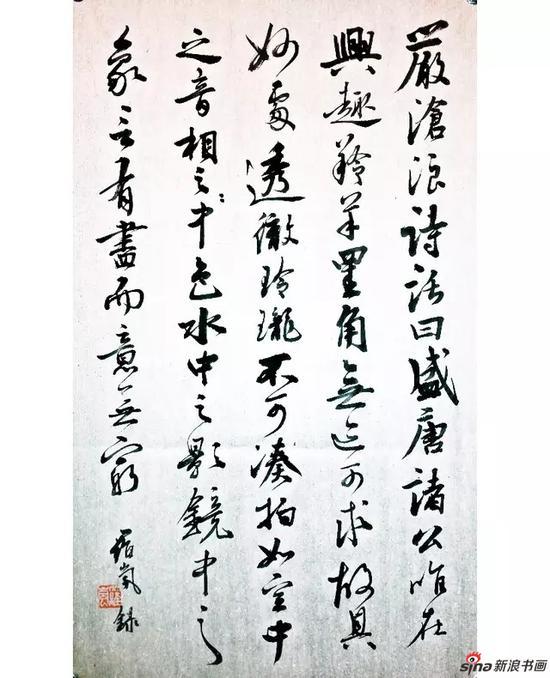 嚴滄浪詩話曰盛唐諸公唯在
興趣羚羊罣角無迹可求故其
妙處透徹玲瓏不可湊拍如空中
之音相之中色水中之影鏡中之
象言有盡而意無窮
錄
sina新浪书画